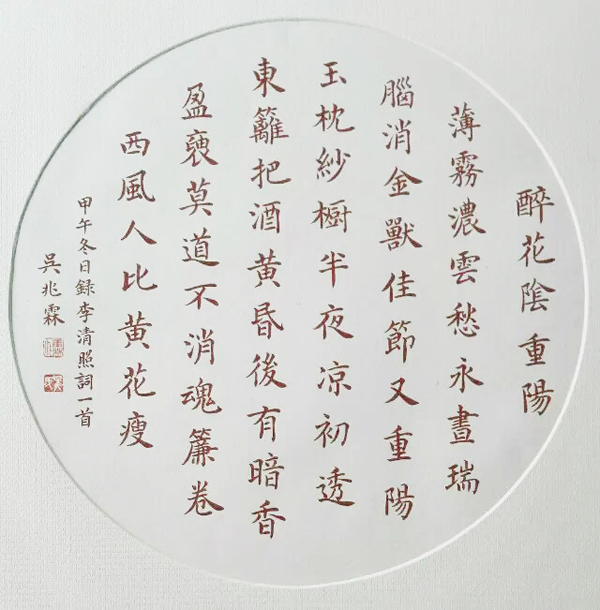 醉花陰重陽
薄霧濃雲愁永晝瑞
腦消金獸佳節又重陽
玉枕紗橱半夜凉初透
東籬把酒黄昏後有暗香
盈褎莫道不消魂簾卷
西風人比黄花瘦
甲午冬日録李清照詞一首
吳兆霖